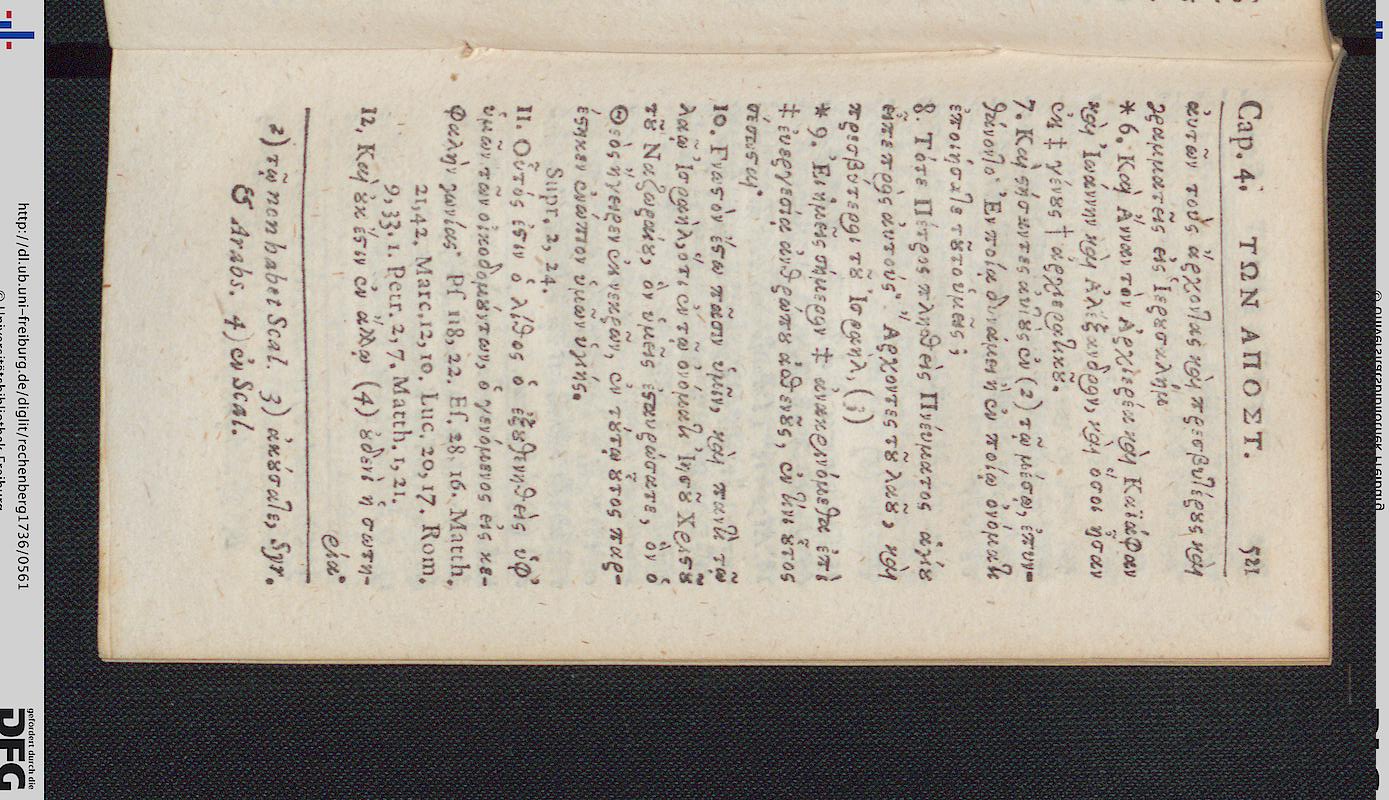 Cap. 4. ΤΩΝ ΑΠΟΣΤ. 521
ἀυτῶν τοὺς ἄρχοντας καὶ πρεσβυτέρους καὶ
γραμματεῖς εἰς Ἱερουσαλὴμ
* 6. Καὶ Ἄνναν τὸν Ἀρχιερέα καὶ Καϊάφαν
καὶ Ἰωάννην καὶ Ἀλέξανδρον, καὶ ὅσοι ἦσαν
ἐκ ‡ γένους † ἀρχιερατικοῦ.
7. Καὶ στήσαντες αὐτοὺς ἐν (2) τῷ μέσῳ, ἐπυν-
θάνοντο· Ἐν ποίᾳ δυνάμει ἢ ἐν ποίῳ ὀνόματι
ἐποιήσατε τοῦτο ὑμεῖς;
8. Τότε Πέτρος πλησθεὶς Πνεύματος ἁγίου
εἶπε πρὸς ἀυτούς· Ἄρχοντες τοῦ λαοῦ, καὶ
πρεσβύτεροι τοῦ Ἰσραὴλ, (3)
* 9. Ἐι ἡμεῖς σήμερον ‡ ἀνακρινόμεθα ἐπὶ
‡ ἐυεργεσίᾳ ἀνθρώπου ἀσθενοῦς, ἐν τίνι οὗτος
σέσωσαι·
10. Γνωστὸν ἔστω πᾶσιν ὑμῖν, καὶ παντὶ τῷ
λαῷ Ἰσραὴλ, ὅτι ἐν τῷ ὀνόματι Ἰησοῦ Χριστοῦ
τοῦ Ναζωραίου, ὃν ὑμεῖς ἐσταυρώσατε, ὃν ὁ
Θεὸς ἤγειρεν ἐκ νεκρῶν, ἐν τούτῳ οὗτος παρ-
έστηκεν ἐνώπιον ὑμῶν ὑγιής.
Supr. 2, 24.
11. Οὗτός ἐστιν ὁ λίθος ὁ ἐξουθενηθεὶς ὑφ'
ὑμῶν τῶν οἰκοδομούντων, ὁ γενόμενος εἰς κε-
φαλὴν γωνίας· Ps. 118, 22. Es. 28. 16. Matth.
21, 42. Marc. 12, 10. Luc. 20, 17. Rom.
9, 33. 1. Petr. 2, 7. Matth. 1, 21.
12. Καὶ οὐκ ἔστιν ἐν ἄλλῳ (4) οὐδενὶ ἡ σωτη-
ρία·
2) τῷ non habet Scal. 3) ἀκούσατε, Syr.
& Arabs. 4) ἐν Scal.
http://dl.ub.uni-freiburg.de/diglit/rechenberg1736/0561
© Universitätsbibliothek Freiburg
gefördert durch die
DFG